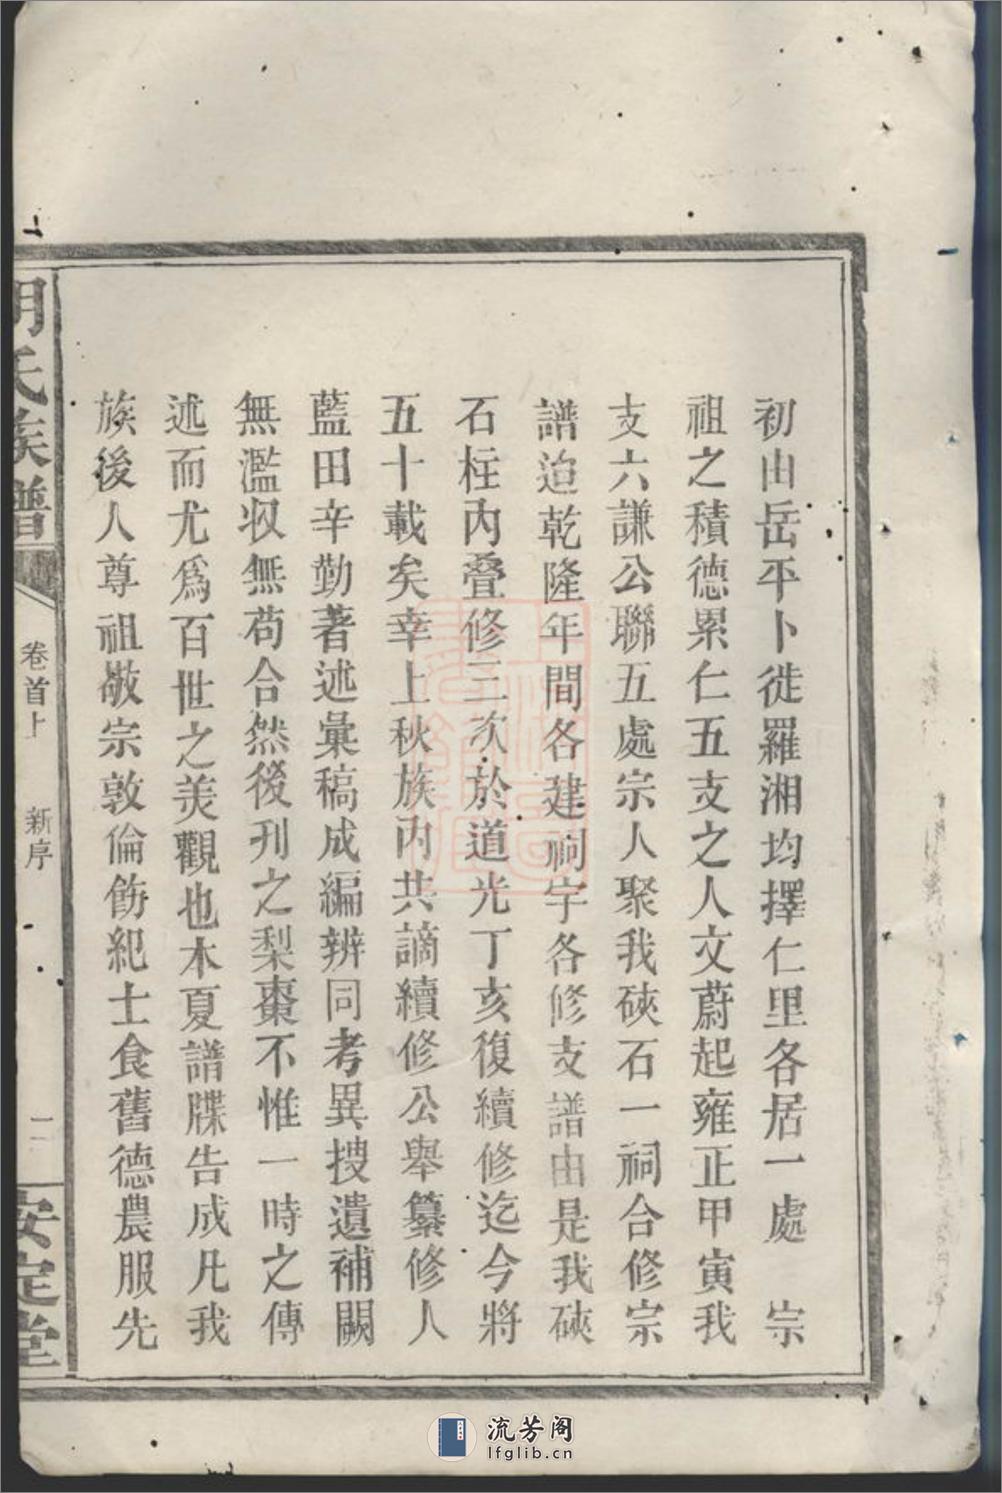 初由岳平卜徙羅湘均擇仁里各居一處　宗
祖之積德累仁五支之人文蔚起雍正甲寅我
支六謙公聯五處宗人聚我硤石一祠合修宗
譜迨乾隆年間各建祠宇各修支譜由是我硤
石柱內叠修三次於道光丁亥復續修迄今將
五十載矣幸上秋族內共謫續修公舉纂修人
藍田辛勤著述彙稿成編辨同考異搜遺補闕
無濫收無苟合然後刋之梨棗不惟一時之傳
述而尤爲百世之美觀也本夏譜牒告成凡我
族後人尊祖敬宗敦倫飭紀士食舊德農服先
胡氏族譜
卷首上　新序
二
安定堂
流芳阁
lfglib.cn